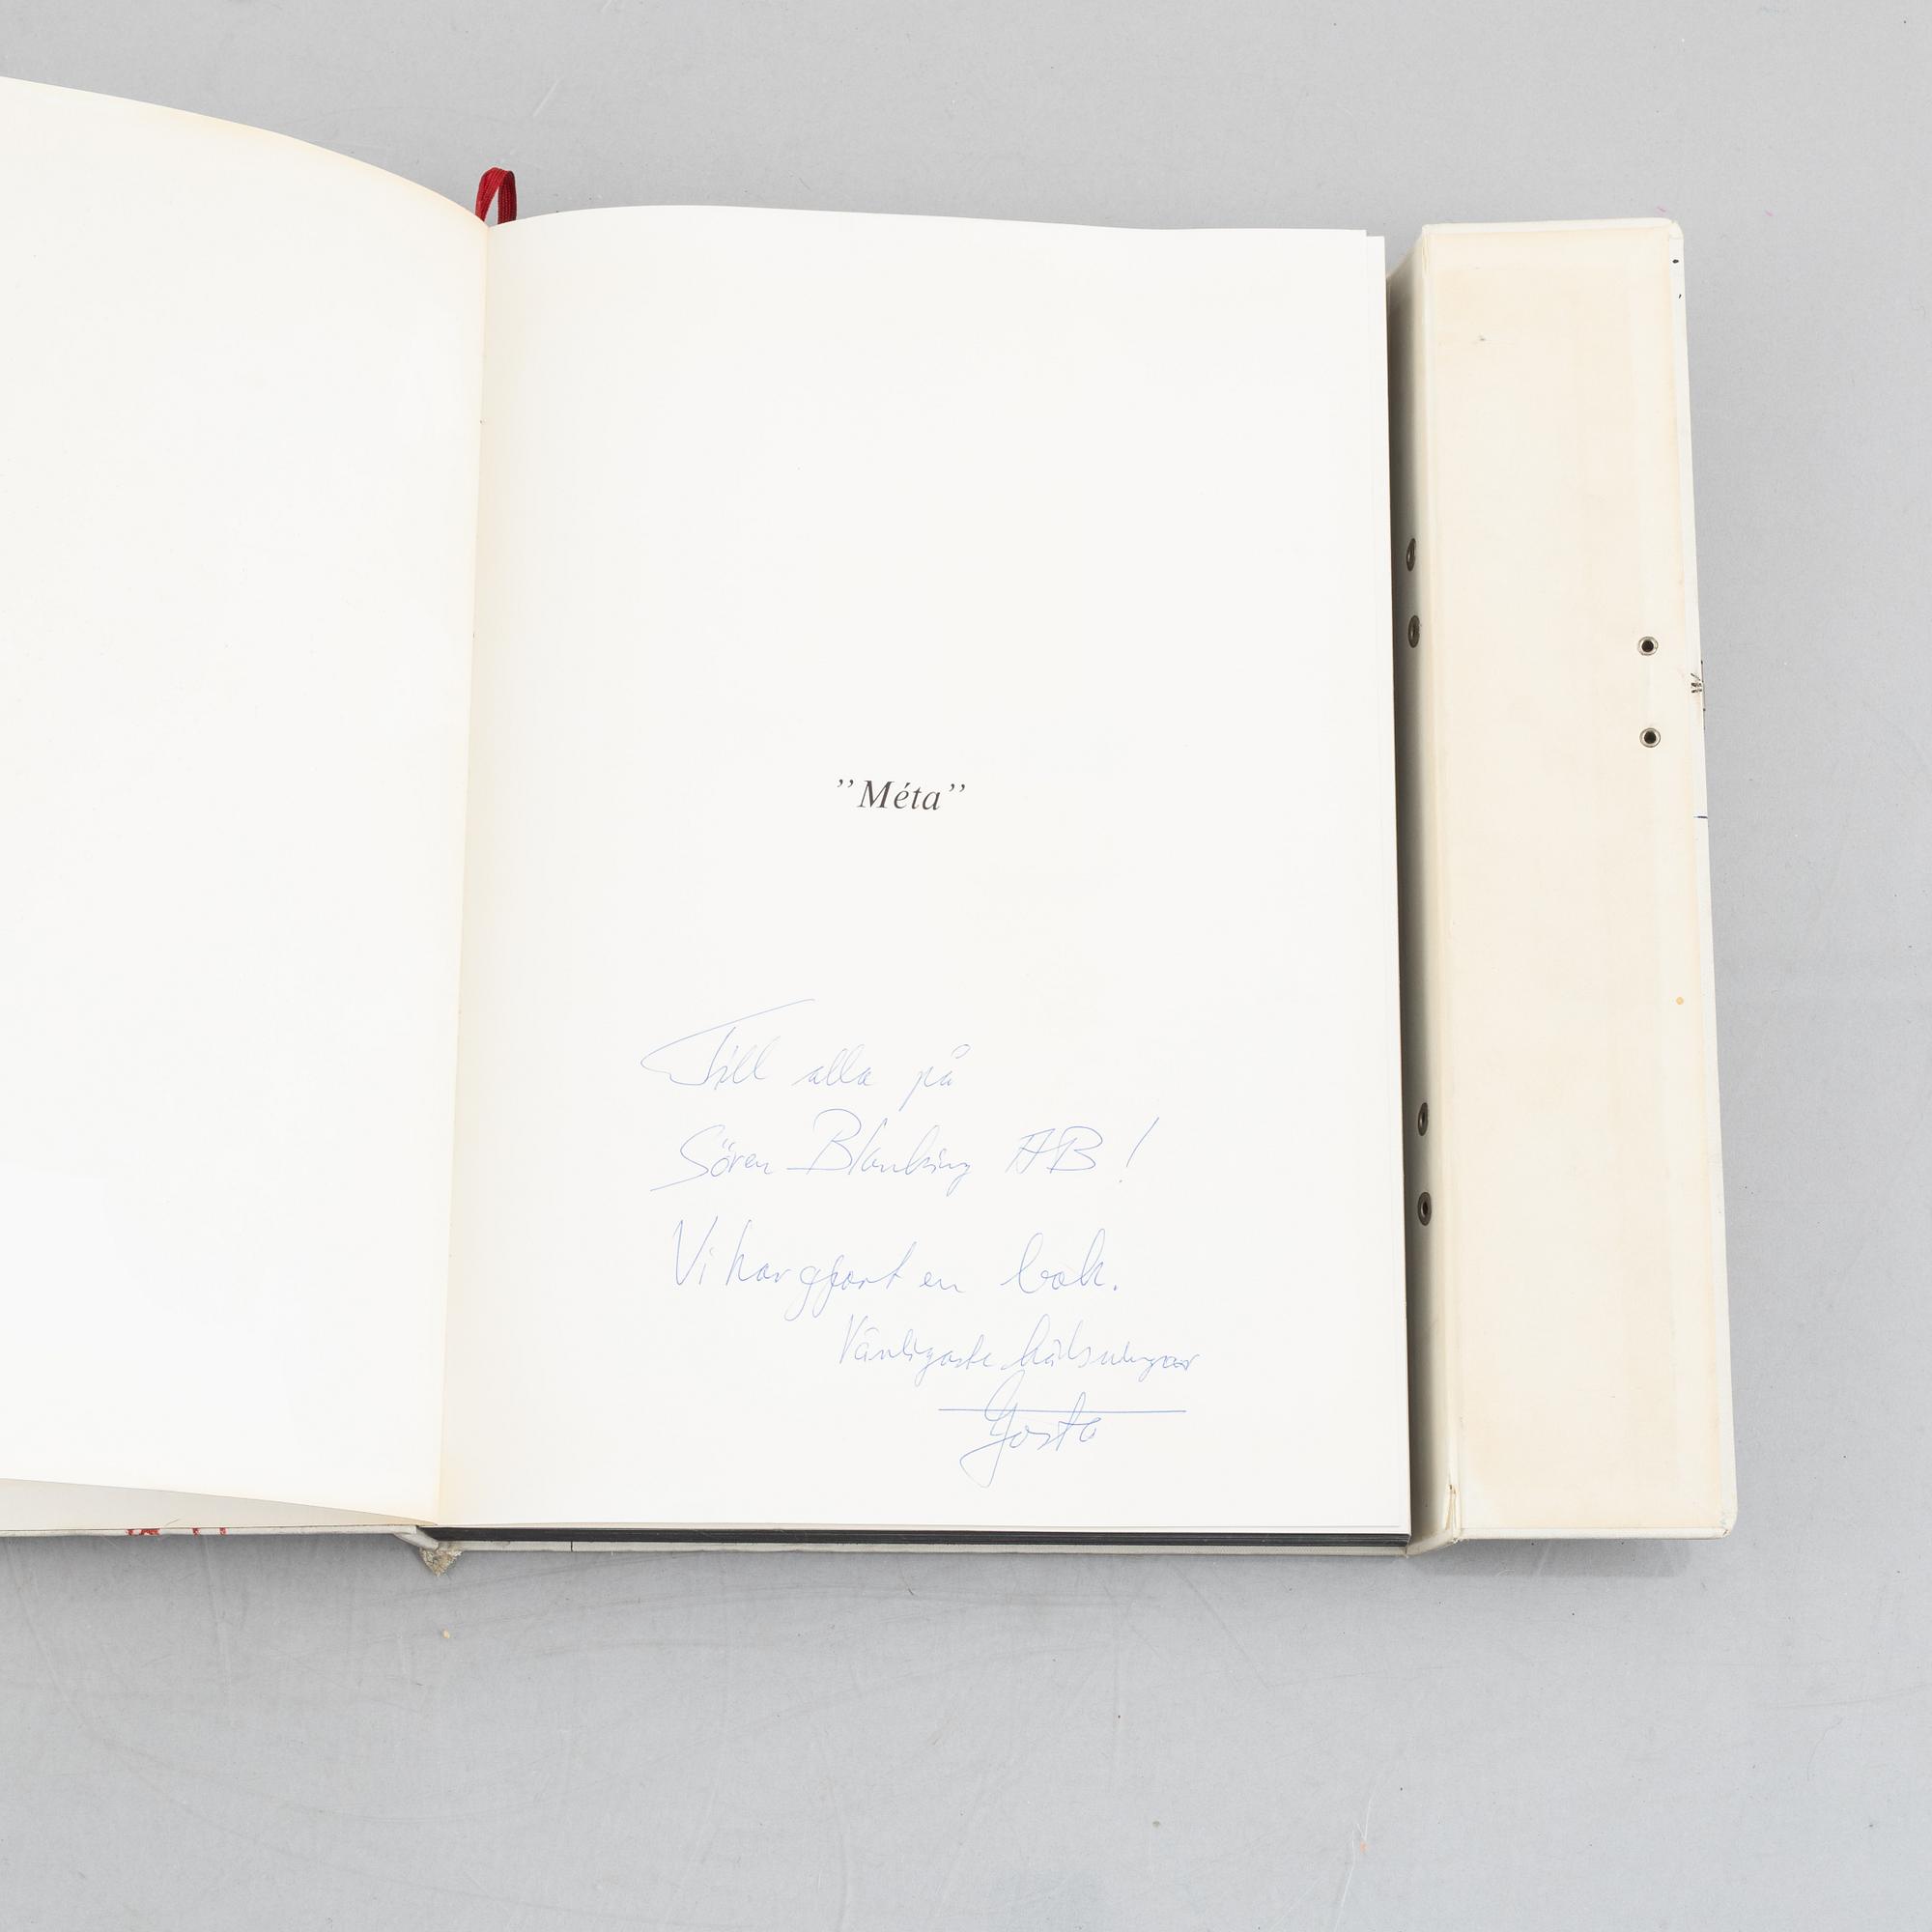 ”Méta”
Till alla på
Sören Blanking AB!
Vi har gjort en bok.
Vänligaste hälsningar
Gösta